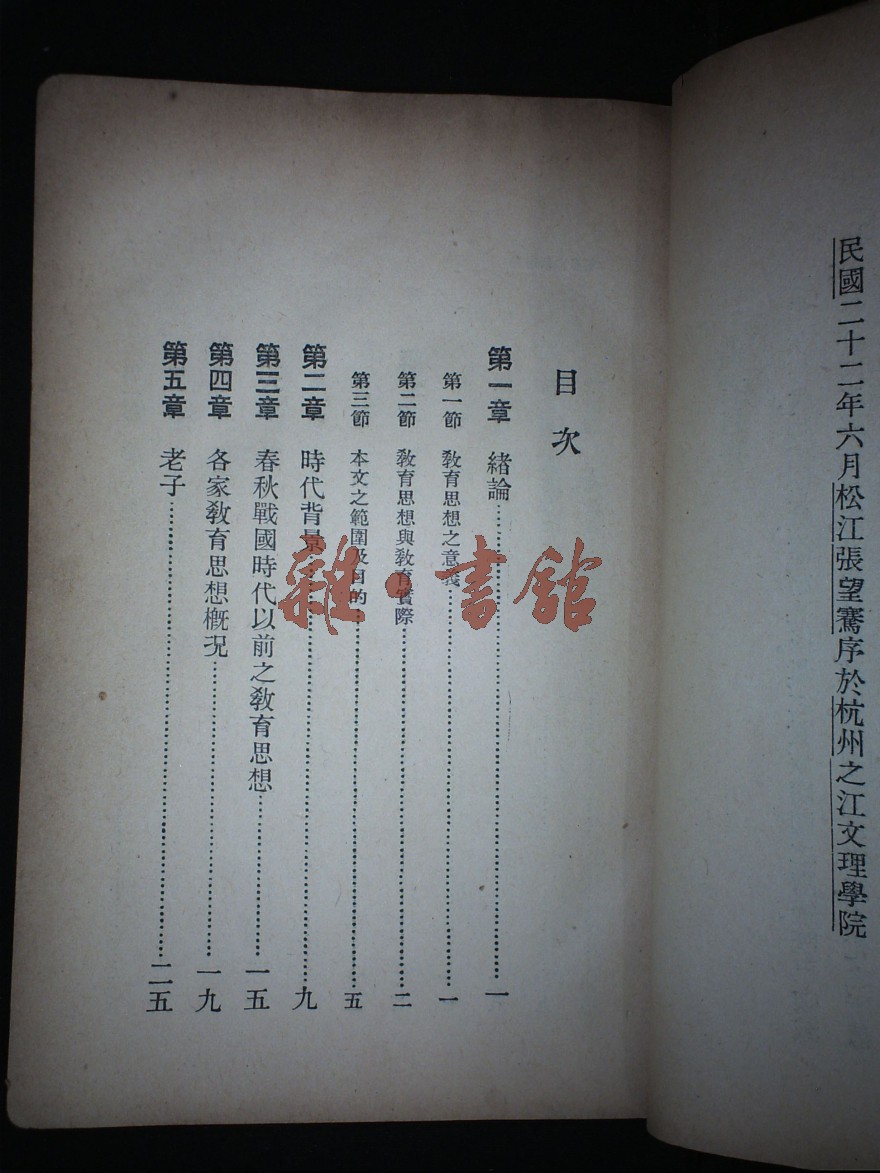 民國二十二年六月松江張望騫序於杭州之江文理學院
目次
第一章 緒論……一
第一節 教育思想之意義……一
第二節 教育思想與教育實際……二
第三節 本文之範圍及目的……五
第二章 時代背景……九
第三章 春秋戰國時代以前之教育思想……一五
第四章 各家教育思想概況……一九
第五章 老子……二五
雜·書館